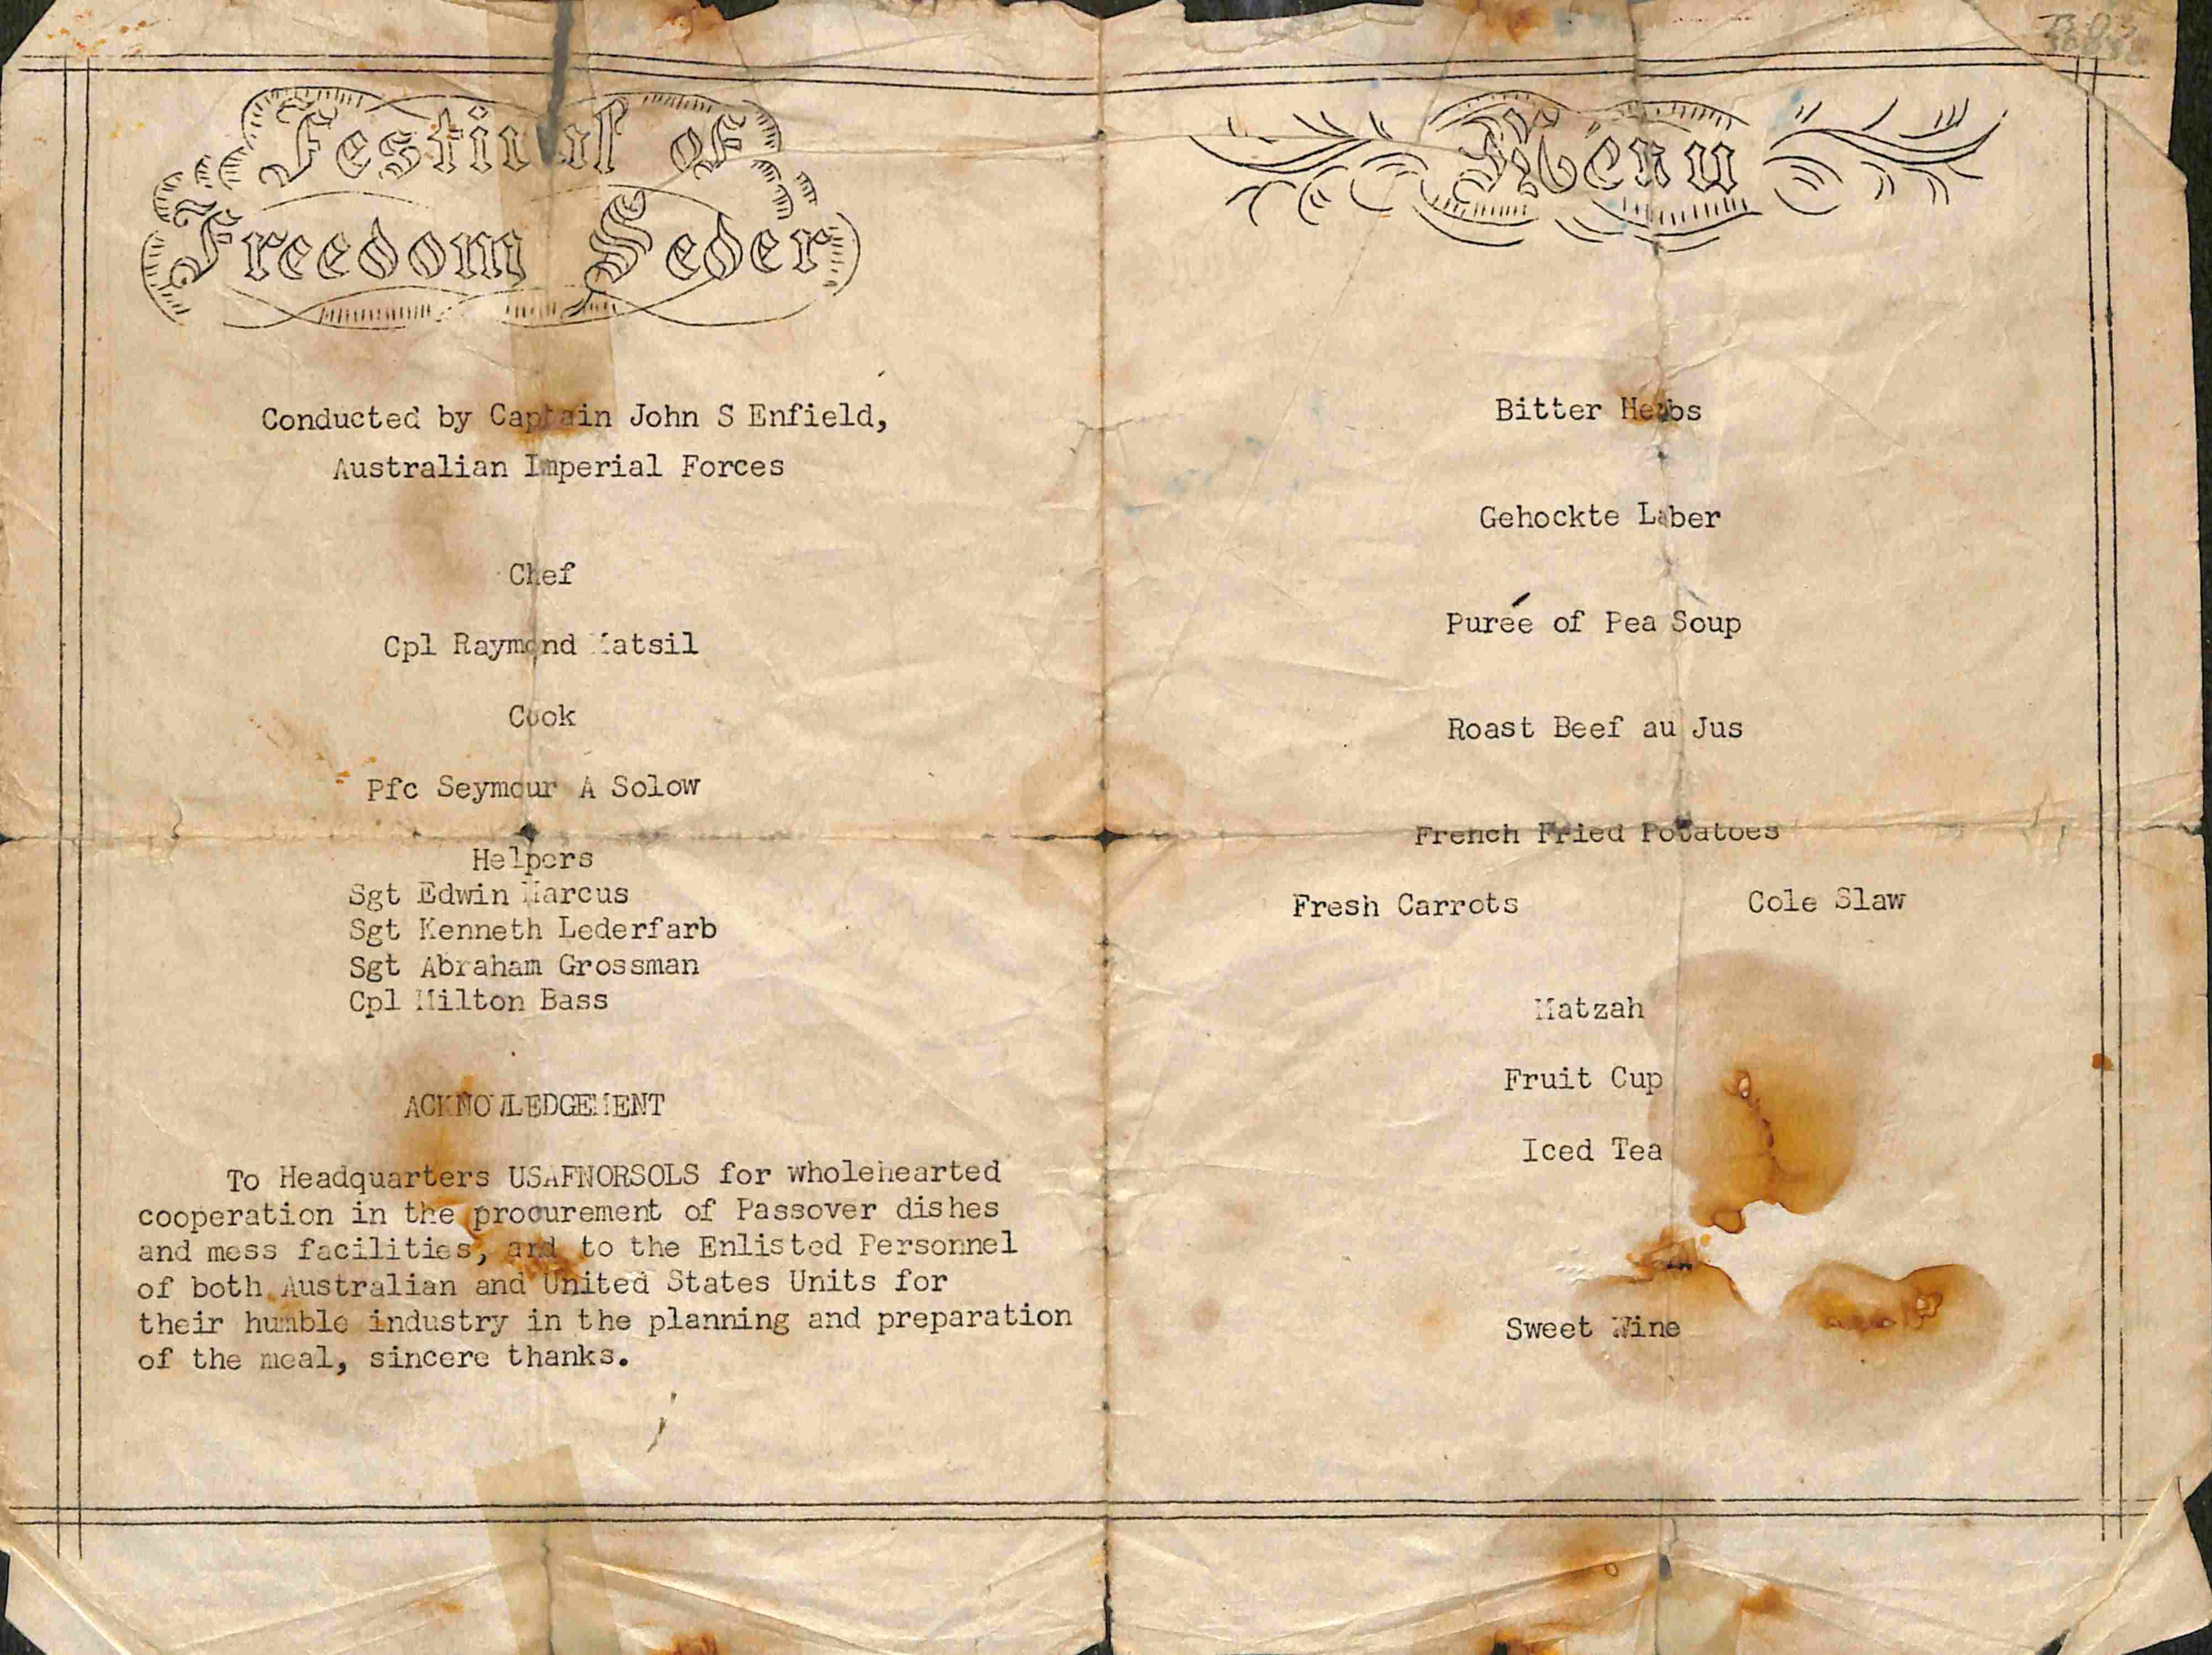 Festival of
Freedom Seder
Conducted by Captain John S Enfield,
Australian Imperial Forces
Chef
Cpl Raymond Matsil
Cook
Pfc Seymour A Solow
Helpers
Sgt Edwin Marcus
Sgt Kenneth Lederfarb
Sgt Abraham Grossman
Cpl Milton Bass
ACKNOWLEDGEMENT
To Headquarters USAFNORSOLS for wholehearted
cooperation in the procurement of Passover dishes
and mess facilities, and to the Enlisted Personnel
of both Australian and United States Units for
their humble industry in the planning and preparation
of the meal, sincere thanks.
Menu
Bitter Herbs
Gehockte Laber
Purée of Pea Soup
Roast Beef au Jus
French Fried Potatoes
Fresh Carrots Cole Slaw
Matzah
Fruit Cup
Iced Tea
Sweet Wine